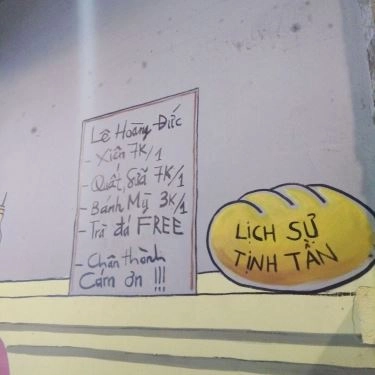 Lê Hoàng Đức
- Xiên 7K/1
- Quất, Sữa 7K/1
- Bánh Mỳ 3K/1
- Trà đá FREE
- Chân thành
Cám ơn !!!
LỊCH SỬ
TỊNH TẤN